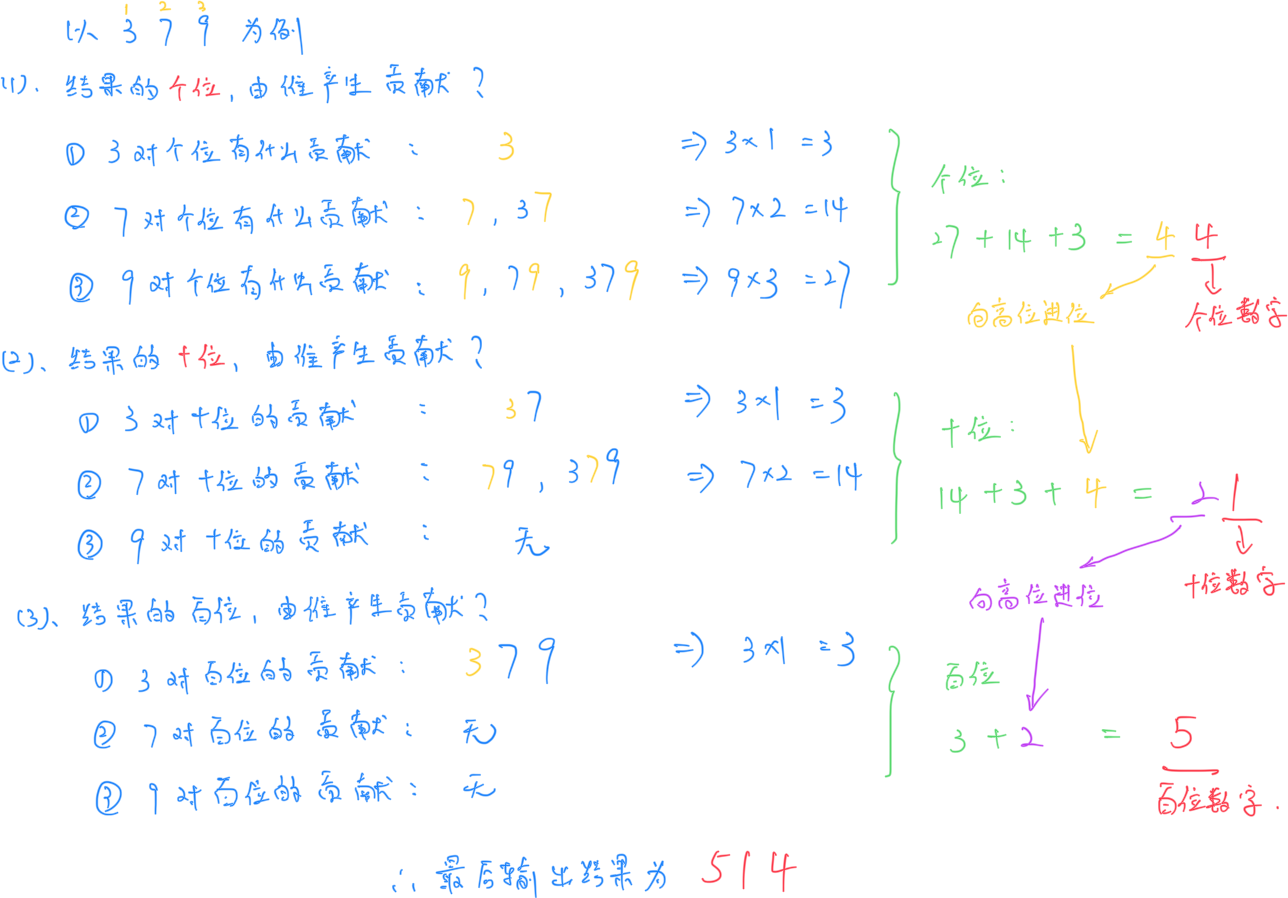 1 2 3
以 3 7 9 为例
(1)、结果的个位，由谁产生贡献？
① 3 对个位有什么贡献： 3 => 3×1 =3
② 7 对个位有什么贡献： 7，37 => 7×2 =14
③ 9 对个位有什么贡献： 9，79，379 => 9×3 =27
个位：
27+14+3 = 4 4
向高位进位
个位数字
(2)、结果的十位，由谁产生贡献？
① 3 对十位的贡献： 37 => 3×1 =3
② 7 对十位的贡献： 79，379 => 7×2 =14
③ 9 对十位的贡献： 无
十位：
14+3+4 = 2 1
向高位进位
十位数字
(3)、结果的百位，由谁产生贡献？
① 3 对百位的贡献： 3 7 9 => 3×1 =3
② 7 对百位的贡献： 无
③ 9 对百位的贡献： 无
百位
3+2 = 5
百位数字.
∴ 最后输出结果为 5 1 4